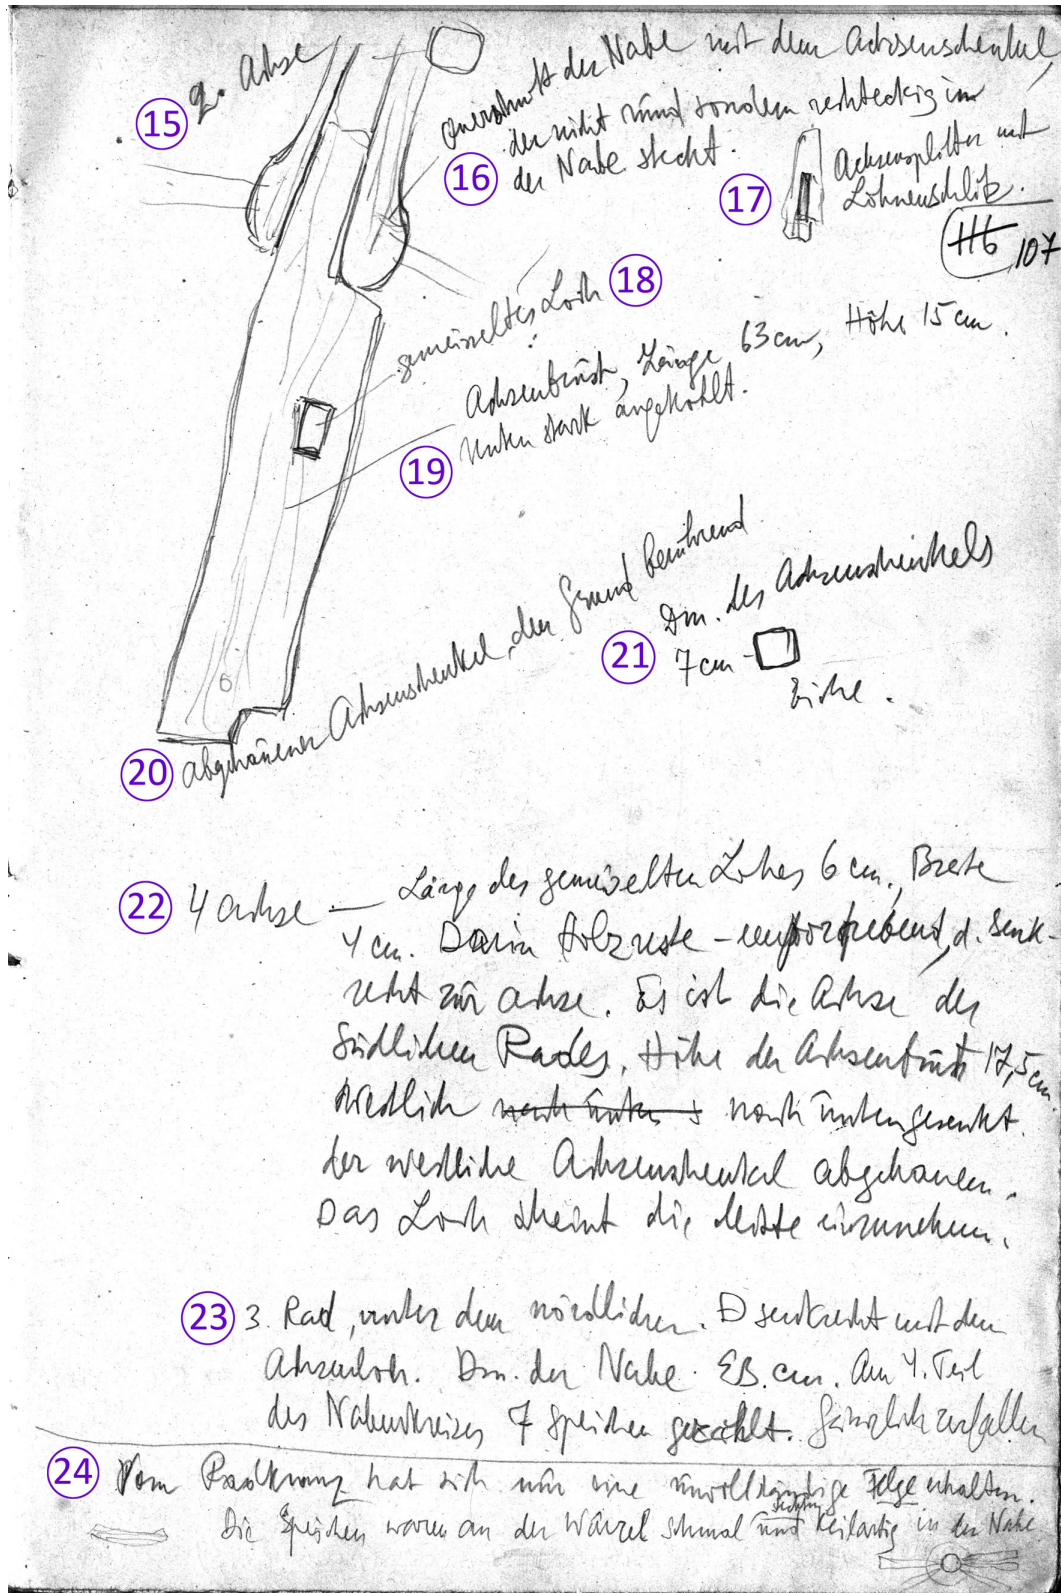 15 2. Achse
Querschnitt der Nabe mit dem Achsenschenkel,
der nicht rund sondern rechteckig im
16 der Nabe steckt.
17 Achsensplitter mit
Löhnenschlitz.
H6 107
gemeisseltes Loch 18
Achsenbrust, Länge 63 cm, Höhe 15 cm.
19 Unten stark angekohlt.
20 abgehauener Achsenschenkel, den Grund berührend
Dm. des Achsenschenkels
21 7 cm -
Eiche.
22 4 Achse — Länge des gemeiselten Loches 6 cm., Breite
4 cm. Darin Holzreste - , d. Senk-
recht zur Achse. Es ist die Achse des
Südlichen Rades. Höhe der Achsenbrust 17,5 cm
nach unten nach unten gesenkt.
der westliche Achsenschenkel abgehauen.
Das Loch scheint die Mitte einzunehmen.
23 3. Rad, unter dem nördlichen. senkrecht mit dem
Achsenloch. Dm. der Nabe. cm. Am 4. Teil
des Nabenkreises 7 Speichen gezählt. Gänzlich zerfallen
24 Vom Radkranz hat sich nur eine unvollständige Felge erhalten.
Die Speichen waren an der Wurzel schmal und keilartig in der Nabe